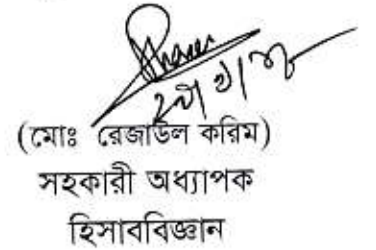 (মোঃ রেজাউল করিম)
সহকারী অধ্যাপক
হিসাববিজ্ঞান